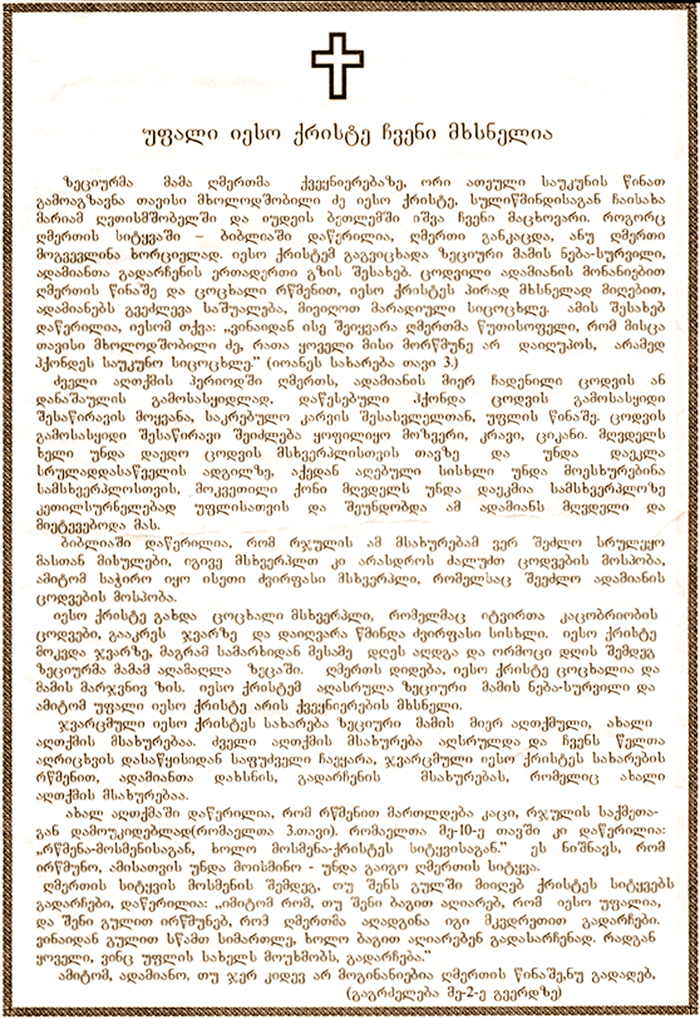 უფალი იესო ქრისტე ჩვენი მხსნელია
ზეციურმა მამა ღმერთმა ქვეყნიერებაზე, ორი ათეული საუკუნის წინათ
გამოაგზავნა თავისი მხოლოდშობილი ძე იესო ქრისტე, სულიწმინდისაგან ჩაისახა
მარიამ ღვთისმშობელში და იუდეის ბეთლემში იშვა ჩვენი მაცხოვარი. როგორც
ღმერთის სიტყვაში – ბიბლიაში დაწერილია, ღმერთი განკაცდა, ანუ ღმერთი
მოგვევლინა ხორციელად. იესო ქრისტემ გაგვიცხადა ზეციური მამის ნება-სურვილი,
ადამიანთა გადარჩენის ერთადერთი გზის შესახებ. ცოდვილი ადამიანის მონანიებით
ღმერთის წინაშე და ცოცხალი რწმენით, იესო ქრისტეს პირად მხსნელად მიღებით,
ადამიანებს გვეძლევა საშუალება, მივიღოთ მარადიული სიცოცხლე. ამის შესახებ
დაწერილია, იესომ თქვა: „ვინაიდან ისე შეიყვარა ღმერთმა წუთისოფელი, რომ მისცა
თავისი მხოლოდშობილი ძე, რათა ყოველი მისი მორწმუნე არ დაიღუპოს, არამედ
ჰქონდეს საუკუნო სიცოცხლე.” (იოანეს სახარება თავი 3.)
ძველი აღთქმის პერიოდში ღმერთს, ადამიანის მიერ ჩადენილი ცოდვის ან
დანაშაულის გამოსასყიდლად, დაწესებული ჰქონდა ცოდვის გამოსასყიდი
შესაწირავის მოყვანა, საკრებულო კარვის შესასვლელთან, უფლის წინაშე. ცოდვის
გამოსასყიდი შესაწირავი შეიძლება ყოფილიყო მოზვერი, კრავი, ციკანი. მღვდელს
ხელი უნდა დაედო ცოდვის მსხვერპლისთვის თავზე და უნდა დაეკლა
სრულადდასაწველის ადგილზე, აქედან აღებული სისხლი უნდა მოესხურებინა
სამსხვერპლოსთვის, მოკვეთილი ქონი მღვდელს უნდა დაეკმია სამსხვერპლოზე
კეთილსურნელებად უფლისათვის და შეუნდობდა ამ ადამიანს მღვდელი და
მიეტევებოდა მას.
ბიბლიაში დაწერილია, რომ რჯულის ამ მსახურებამ ვერ შეძლო სრულეყო
მასთან მისულები, იგივე მსხვერპლთ კი არასდროს ძალუძთ ცოდვების მოსპობა,
ამიტომ საჭირო იყო ისეთი ძვირფასი მსხვერპლი, რომელსაც შეეძლო ადამიანის
ცოდვების მოსპობა.
იესო ქრისტე გახდა ცოცხალი მსხვერპლი, რომელმაც იტვირთა კაცობრიობის
ცოდვები, გააკრეს ჯვარზე და დაიღვარა წმინდა ძვირფასი სისხლი. იესო ქრისტე
მოკვდა ჯვარზე, მაგრამ სამარხიდან მესამე დღეს აღდგა და ორმოცი დღის შემდეგ
ზეციურმა მამამ აღამაღლა ზეცაში. ღმერთს დიდება, იესო ქრისტე ცოცხალია და
მამის მარჯვნივ ზის. იესო ქრისტემ აღასრულა ზეციური მამის ნება-სურვილი და
ამიტომ უფალი იესო ქრისტე არის ქვეყნიერების მხსნელი.
ჯვარცმული იესო ქრისტეს სახარება ზეციური მამის მიერ აღთქმული, ახალი
აღთქმის მსახურებაა. ძველი აღთქმის მსახურება აღსრულდა და ჩვენს წელთა
აღრიცხვის დასაწყისიდან საფუძველი ჩაეყარა, ჯვარცმული იესო ქრისტეს სახარების
რწმენით, ადამიანთა დახსნის, გადარჩენის მსახურებას, რომელიც ახალი
აღთქმის მსახურებაა.
ახალ აღთქმაში დაწერილია, რომ რწმენით მართლდება კაცი, რჯულის საქმეთა-
გან დამოუკიდებლად(რომაელთა 3.თავი). რომაელთა მე-10-ე თავში კი დაწერილია:
„რწმენა-მოსმენისაგან, ხოლო მოსმენა-ქრისტეს სიტყვისაგან.” ეს ნიშნავს, რომ
ირწმუნო, ამისათვის უნდა მოისმინო - უნდა გაიგო ღმერთის სიტყვა.
ღმერთის სიტყვის მოსმენის შემდეგ, თუ შენს გულში მიიღებ ქრისტეს სიტყვებს
გადარჩები, დაწერილია: „იმიტომ რომ, თუ შენი ბაგით აღიარებ, რომ იესო უფალია,
და შენი გულით ირწმუნებ, რომ ღმერთმა აღადგინა იგი მკვდრეთით გადარჩები.
ვინაიდან გულით სწამთ სიმართლე, ხოლო ბაგით აღიარებენ გადასარჩენად. რადგან
ყოველი, ვინც უფლის სახელს მოუხმობს, გადარჩება.”
ამიტომ, ადამიანო, თუ ჯერ კიდევ არ მოგინანიებია ღმერთის წინაშე,ნუ გადადებ,
(გაგრძელება მე-2-ე გვერდზე)